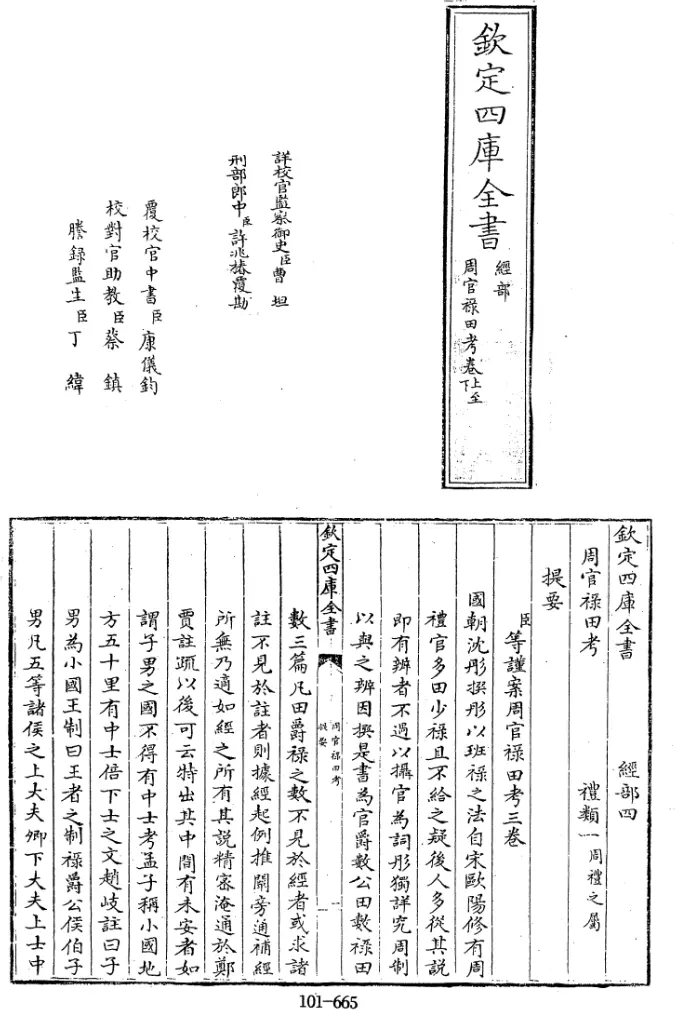 欽定四庫全書
經部
周官祿田考卷上至下
詳校官監察御史臣曹坦
刑部郎中臣許兆椿覆勘
覆校官中書臣康儀鈞
校對官助教臣蔡鎮
謄録監生臣丁緯
欽定四庫全書 經部四
周官祿田考 禮類一周禮之屬
提要
臣等謹案周官祿田考三卷
國朝沈彤撰彤以班祿之法自宋歐陽修有周
禮官多田少祿且不給之疑後人多從其說
即有辨者不過以攝官為詞彤獨詳究周制
以與之辨因撰是書為官爵數公田數祿田
欽定四庫全書
周官祿田考
提要
一
數三篇凡田爵祿之數不見於經者或求諸
註不見於註者則據經起例推闡旁通補經
所無乃適如經之所有其說精密淹通於鄭
賈註疏以後可云特出其中間有未安者如
謂子男之國不得有中士考孟子稱小國地
方五十里有中士倍下士之文趙岐註曰子
男為小國王制曰王者之制祿爵公侯伯子
男凡五等諸侯之上大夫卿下大夫上士中
101-665